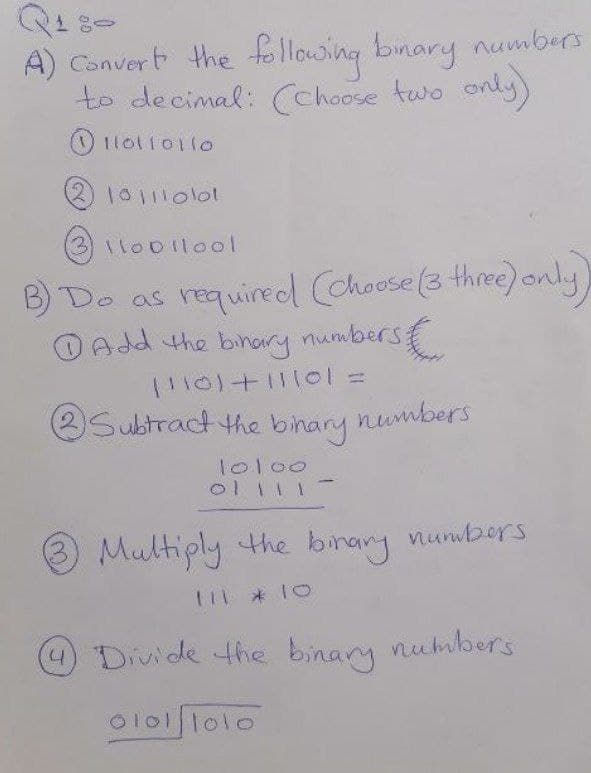 Q1 :-
A) Convert the following binary numbers
to decimal: (Choose two only)
① 110110110
② 101110101
③ 110011001
B) Do as required (Choose (3 three) only)
① Add the binary numbers
11101 + 11101 =
② Subtract the binary numbers
10100
01111 -
③ Multiply the binary numbers
111 * 10
④ Divide the binary numbers
0101 1010